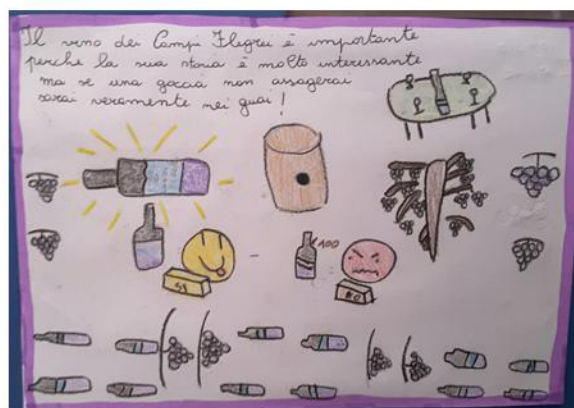 Il vino dei Campi Flegrei è importante
perché la sua storia è molto interessante
ma se una goccia non assagerai
sarai veramente nei guai!
100